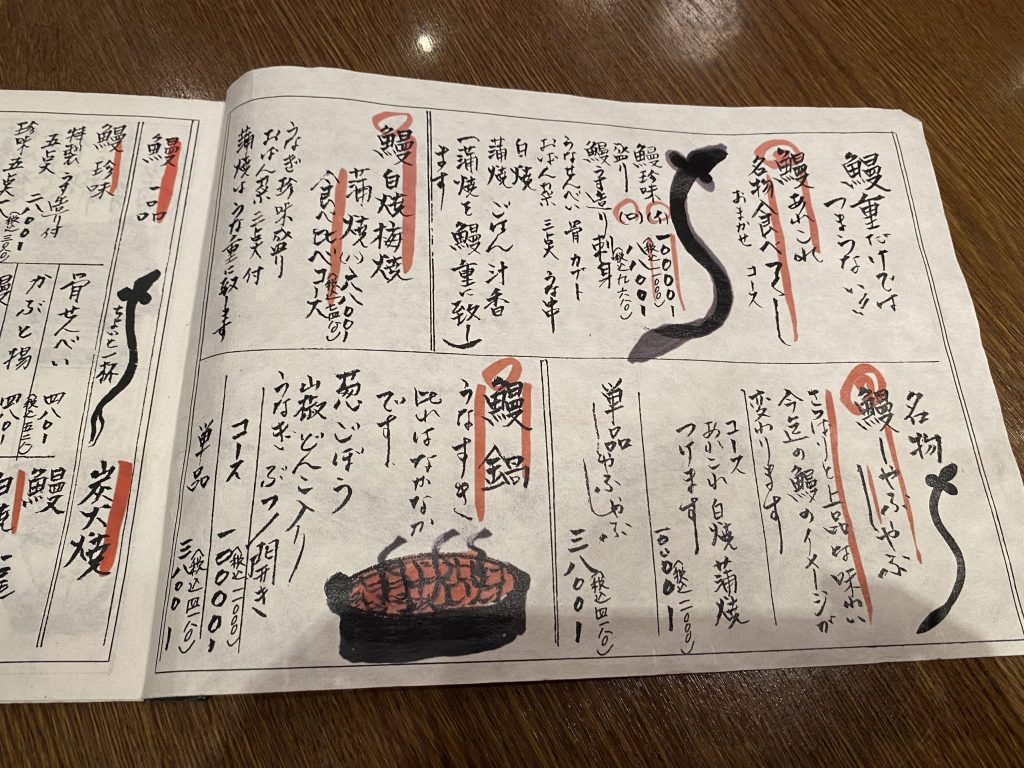 鰻重だけでは
つまらない!!
鰻あれこれ
名物食べつくし
おまかせ コース
鰻珍味 (イ) 一〇〇〇〇
(税込一一〇〇〇)
盛り (ロ) 八八〇〇
(税込九六八〇)
鰻うす造り 刺身
うなせんべい 骨 カブト
おばん菜 三点 うな串
白焼
蒲焼 ごはん 汁 香
(蒲焼を鰻重に致し
ます)
鰻 白焼 梅焼
蒲焼 (ハ) 六八〇〇
食べ比べコース
うなぎ珍味盛り
おばん菜 三点付
蒲焼は うな重に致します
名物
鰻しゃぶしゃぶ
さっぱりと上品な味わい
今迄の鰻のイメージが
変わります
コース
あれこれ 白焼 蒲焼
つけます
一〇〇〇〇
(税込一一〇〇〇)
単品しゃぶしゃぶ
三八〇〇
(税込四一八〇)
鰻鍋
うなすき
此れはなかなか
です
葱ごぼう
山椒どんこ入り
うなぎ ぶつ 開き
コース
一〇〇〇〇
(税込一一〇〇〇)
単品
三八〇〇
(税込四一八〇)
鰻 一品
鰻 珍味
特製 うす造り付
五点
珍味 五点
ちょいと一杯
骨せんべい
四八〇
かぶと揚
四八〇
炭火焼
鰻
白焼